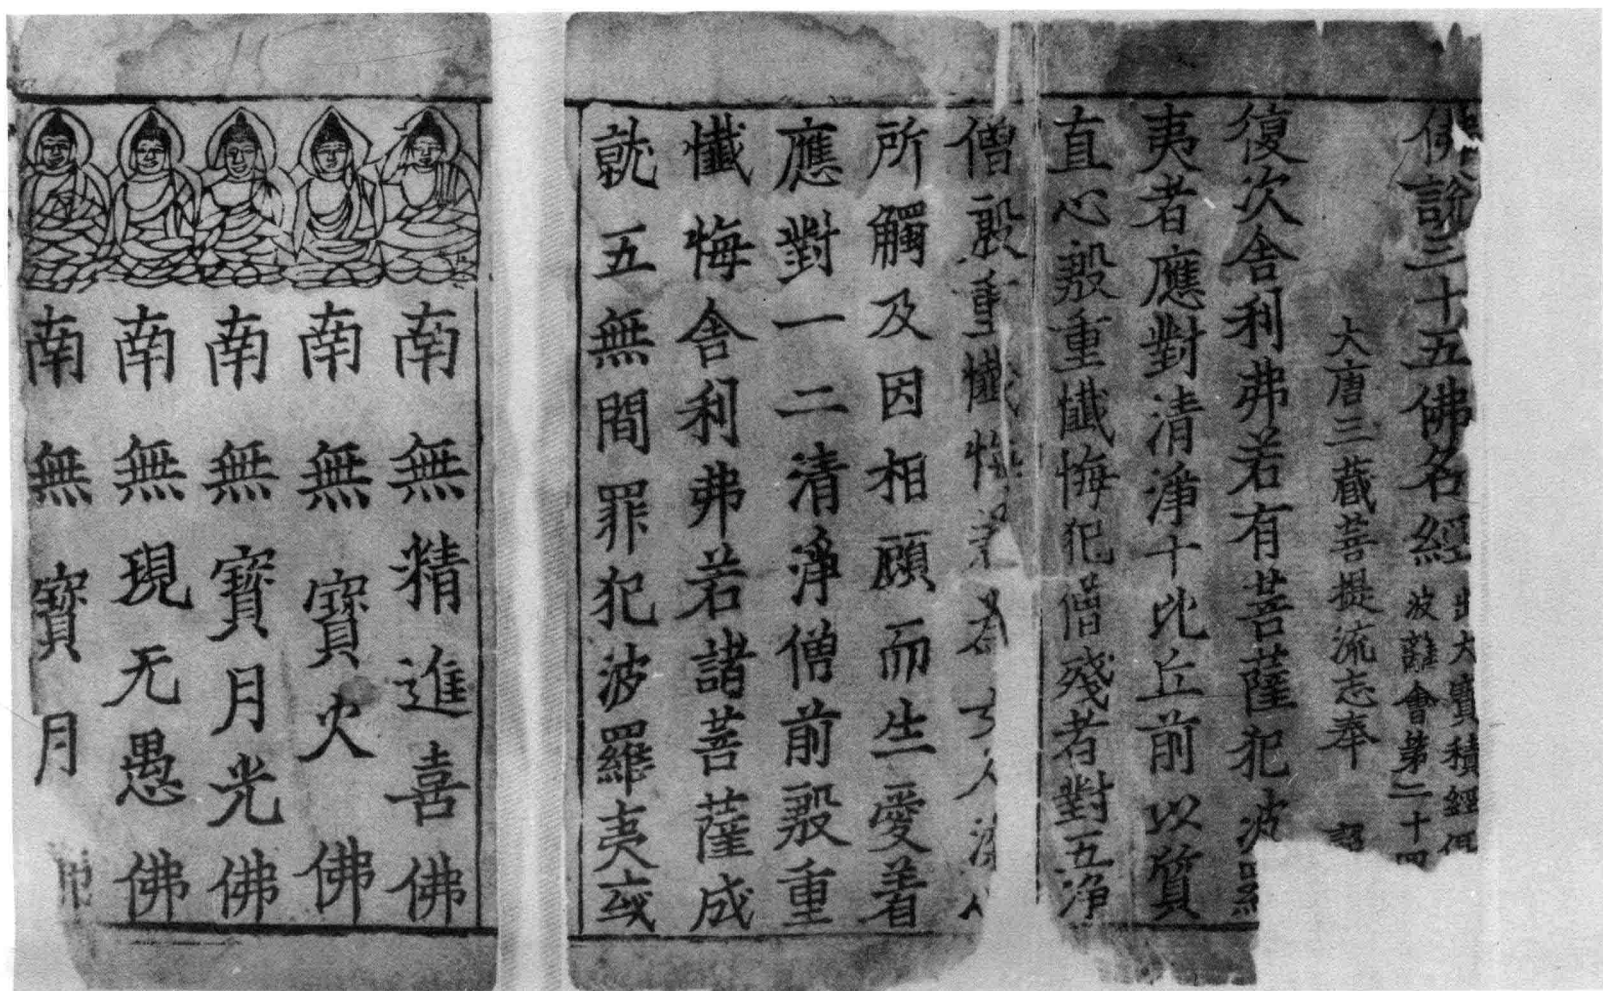 佛說三十五佛名經
出大寶積經優
波離會第二十四
大唐三藏菩提流志奉 詔
復次舍利弗若有菩薩犯波羅
夷者應對清淨十比丘前以質
直心殷重懺悔犯僧殘者對五淨
僧殷重懺悔若為女人染心
所觸及因相顧而生愛着
應對一二清淨僧前殷重
懺悔舍利弗若諸菩薩成
就五無間罪犯波羅夷或
南無精進喜佛
南無寶火佛
南無寶月光佛
南無現无愚佛
南無寶月佛